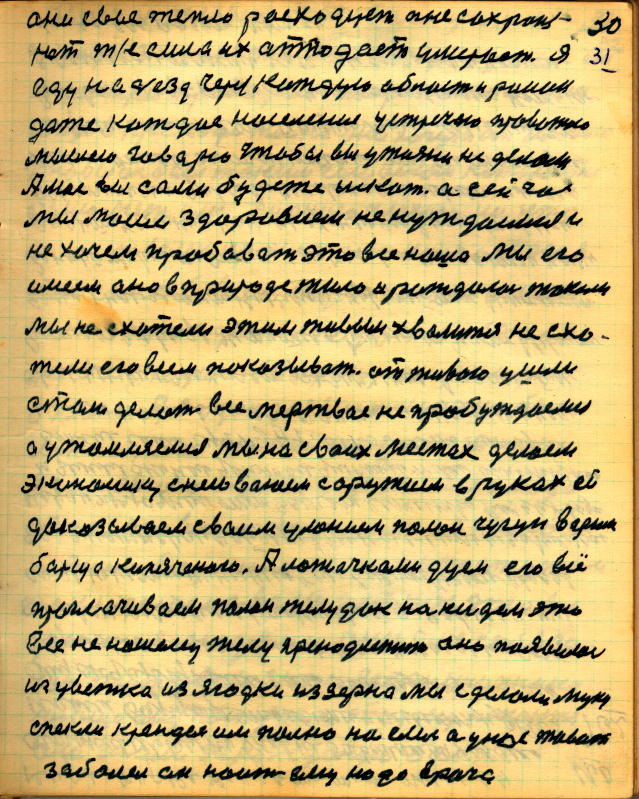 они свое тепло росходуют а не сохроня- 30
ют т/е сила их аттодаеть умероют. я 31
еду на д/езд чери/ каждую област и район
даже каждое население устречаю провожаю
мыслею говарю чтобы вы ужасни не делали
А мне вы сами будете искат. а сей час
мы моим здоровием не нуждаемся и
не хочем пробават это все наше мы его
имеем ано в природе жило а рождалос такими
мы не схотели этим живым хвалится не схо-
тели его всем показыват. от живого ушли
стали делат все мертвае не пробуждаемся
а утомляемся мы на своих местах делаем
экономику снеы ваем с оружием в руках ей
доказываем своим уменим полон чугун варим
барща кипяченого. А ложачками дуем его всё
проглачиваем полон желудок накидем это
все не нашему телу преподметит ано появилос
из цветка из ягодки из зерна мы сделали муку
спекли крендея им полно наелся а уное живот
заболел он ноит ему надо врача